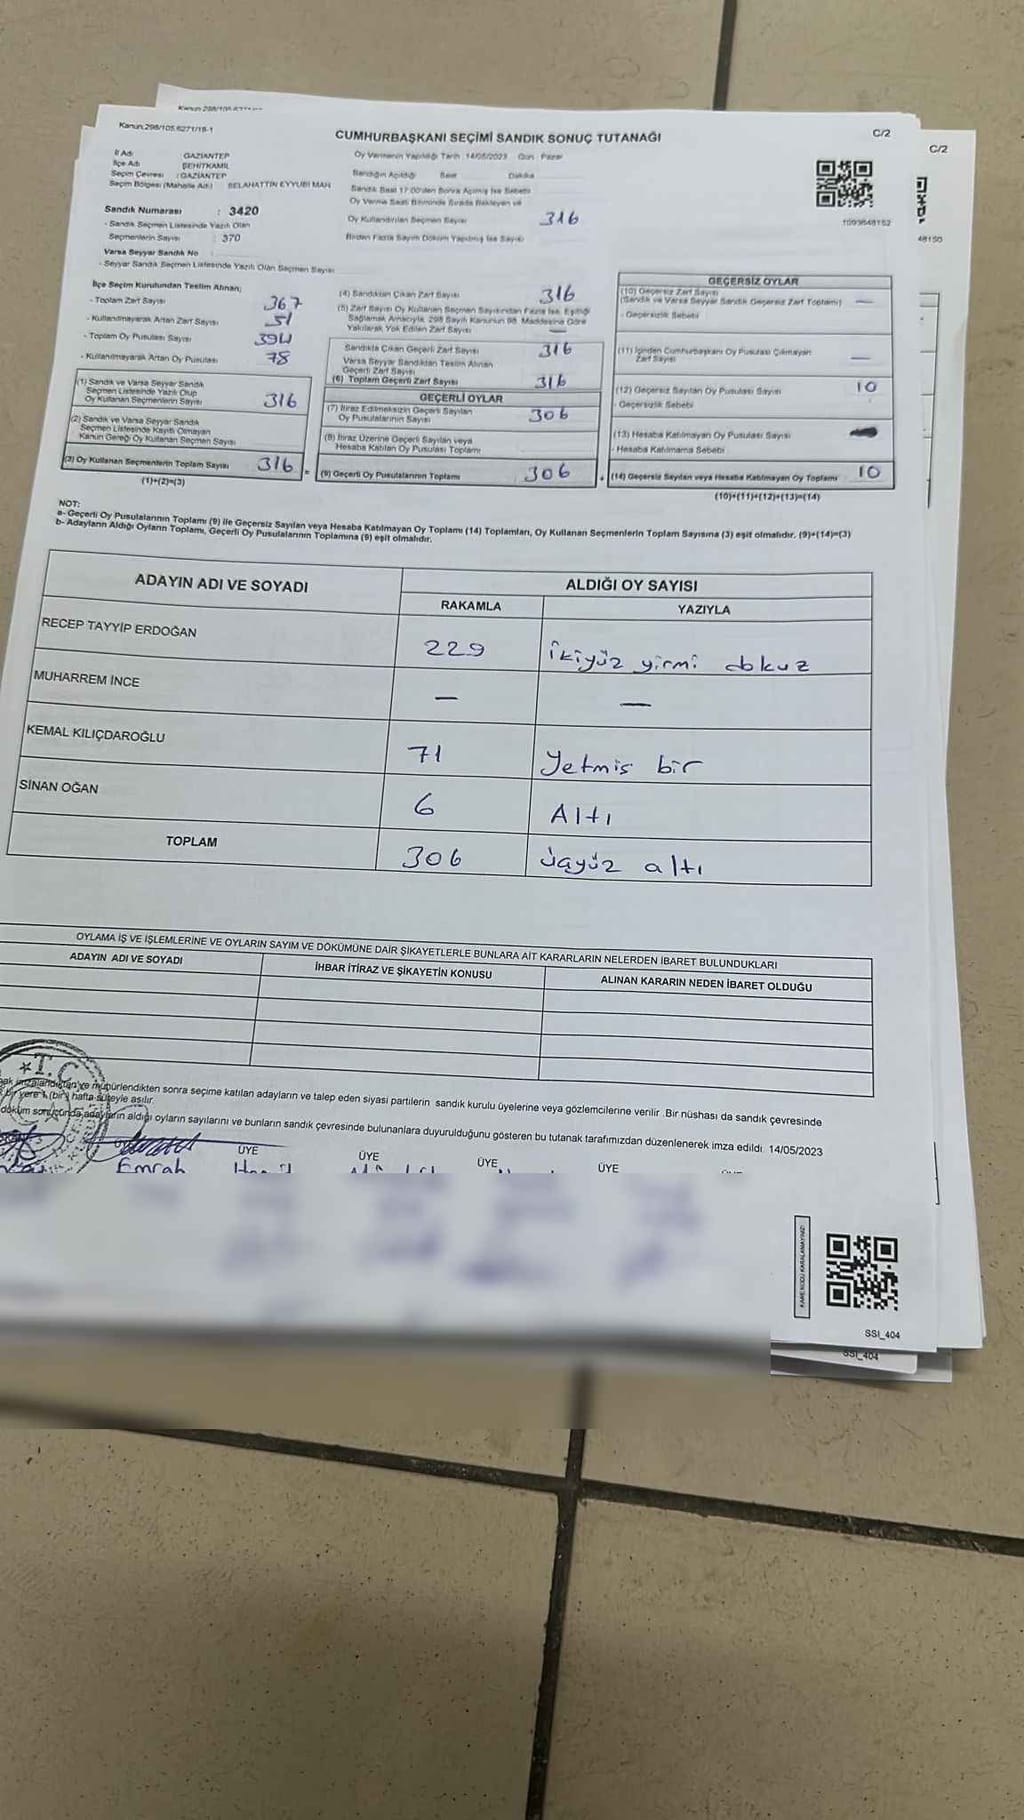 Kanun:298/105,6271/18-1
C/2
C/2
CUMHURBAŞKANI SEÇİMİ SANDIK SONUÇ TUTANAĞI
İl Adı GAZİANTEP
Oy Vermenin Yapıldığı Tarih 14/05/2023 Gün Pazar
İlçe Adı ŞEHİTKAMİL
Seçim Çevresi : GAZİANTEP
Sandığın Açıldığı Saat Dakika
Seçim Bölgesi (Mahalle Adı) SELAHATTİN EYYUBİ MAH
Sandık Saat 17:00'den Sonra Açılmış İse Sebebi
Sandık Numarası : 3420
Oy Kullandırılan Seçmen Sayısı 316
1093648152
48150
- Sandık Seçmen Listesinde Yazılı Olan
Seçmenlerin Sayısı : 370
Birden Fazla Sayım Döküm Yapılmış İse Sayısı
Varsa Seyyar Sandık No
- Seyyar Sandık Seçmen Listesinde Yazılı Olan Seçmen Sayısı
İlçe Seçim Kurulundan Teslim Alınan;
- Toplam Zarf Sayısı 367
- Kullanılmayarak Artan Zarf Sayısı 51
- Toplam Oy Pusulası Sayısı 394
- Kullanılmayarak Artan Oy Pusulası 78
(1) Sandık ve Varsa Seyyar Sandık
Seçmen Listesinde Yazılı Olup
Oy Kullanan Seçmenlerin Sayısı 316
(2) Sandık ve Varsa Seyyar Sandık
Seçmen Listesinde Kayıtlı Olmayan
Kanun Gereği Oy Kullanan Seçmen Sayısı
(3) Oy Kullanan Seçmenlerin Toplam Sayısı 316
(1)+(2)=(3)
(4) Sandıktan Çıkan Zarf Sayısı 316
(5) Zarf Sayısı Oy Kullanan Seçmen Sayısından Fazla İse, Eşitliği
Sağlamak Amacıyla, 298 Sayılı Kanunun 98. Maddesine Göre
Yakılarak Yok Edilen Zarf Sayısı —
Sandıkta Çıkan Geçerli Zarf Sayısı 316
Varsa Seyyar Sandıktan Teslim Alınan
Geçerli Zarf Sayısı
(6) Toplam Geçerli Zarf Sayısı 316
GEÇERLİ OYLAR
(7) İtiraz Edilmeksizin Geçerli Sayılan
Oy Pusulalarının Sayısı 306
(8) İtiraz Üzerine Geçerli Sayılan veya
Hesaba Katılan Oy Pusulası Toplamı
= (9) Geçerli Oy Pusulalarının Toplamı 306
GEÇERSİZ OYLAR
(10) Geçersiz Zarf Sayısı
(Sandık ve Varsa Seyyar Sandık Geçersiz Zarf Toplamı) —
- Geçersizlik Sebebi
(11) İçinden Cumhurbaşkanı Oy Pusulası Çıkmayan
Zarf Sayısı —
(12) Geçersiz Sayılan Oy Pusulası Sayısı 10
- Geçersizlik Sebebi
(13) Hesaba Katılmayan Oy Pusulası Sayısı
- Hesaba Katılmama Sebebi
+ (14) Geçersiz Sayılan veya Hesaba Katılmayan Oy Toplamı 10
(10)+(11)+(12)+(13)=(14)
NOT:
a- Geçerli Oy Pusulalarının Toplamı (9) ile Geçersiz Sayılan veya Hesaba Katılmayan Oy Toplamı (14) Toplamları, Oy Kullanan Seçmenlerin Toplam Sayısına (3) eşit olmalıdır. (9)+(14)=(3)
b- Adayların Aldığı Oyların Toplamı, Geçerli Oy Pusulalarının Toplamına (9) eşit olmalıdır.
ADAYIN ADI VE SOYADI ALDIĞI OY SAYISI
RAKAMLA YAZIYLA
RECEP TAYYİP ERDOĞAN 229 ikiyüz yirmi dokuz
MUHARREM İNCE — —
KEMAL KILIÇDAROĞLU 71 Yetmis bir
SİNAN OĞAN 6 Altı
TOPLAM 306 üçyüz altı
OYLAMA İŞ VE İŞLEMLERİNE VE OYLARIN SAYIM VE DÖKÜMÜNE DAİR ŞİKAYETLERLE BUNLARA AİT KARARLARIN NELERDEN İBARET BULUNDUKLARI
ADAYIN ADI VE SOYADI İHBAR İTİRAZ VE ŞİKAYETİN KONUSU ALINAN KARARIN NEDEN İBARET OLDUĞU
T.C.
mühürlendikten sonra seçime katılan adayların ve talep eden siyasi partilerin sandık kurulu üyelerine veya gözlemcilerine verilir .Bir nüshası da sandık çevresinde
bir yere 1 (bir) hafta süreyle asılır.
döküm sonucunda adayların aldığı oyların sayılarını ve bunların sandık çevresinde bulunanlara duyurulduğunu gösteren bu tutanak tarafımızdan düzenlenerek imza edildi. 14/05/2023
ÜYE ÜYE ÜYE ÜYE
Emrah
KARE KODU KARALAMAYINIZ!
SSI_404
SSI_404